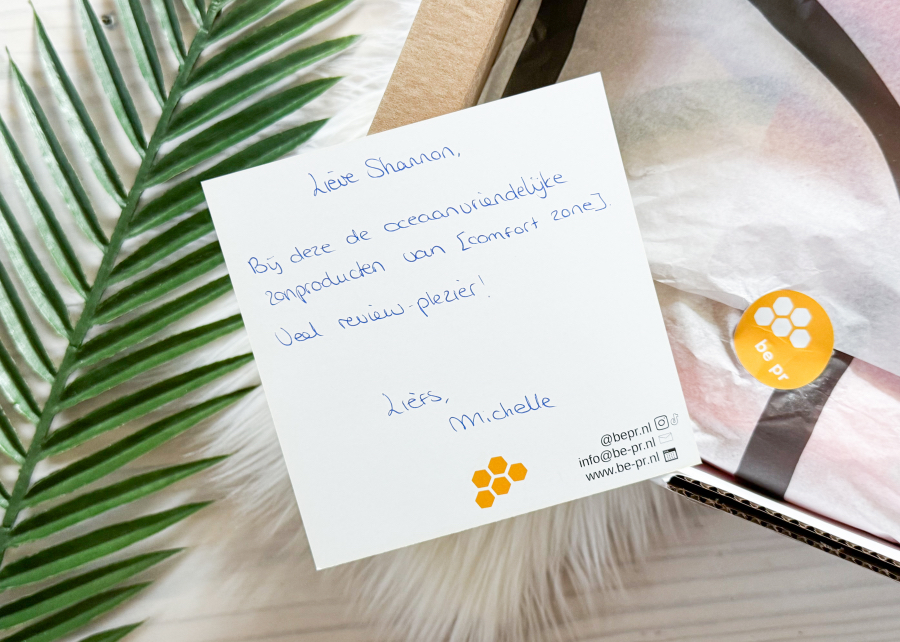 Lieve Shannon,
Bij deze de oceaanvriendelijke
zonproducten van [comfort zone].
Veel review-plezier!
Liefs,
Michelle
@bepr.nl
info@be-pr.nl
www.be-pr.nl
be pr